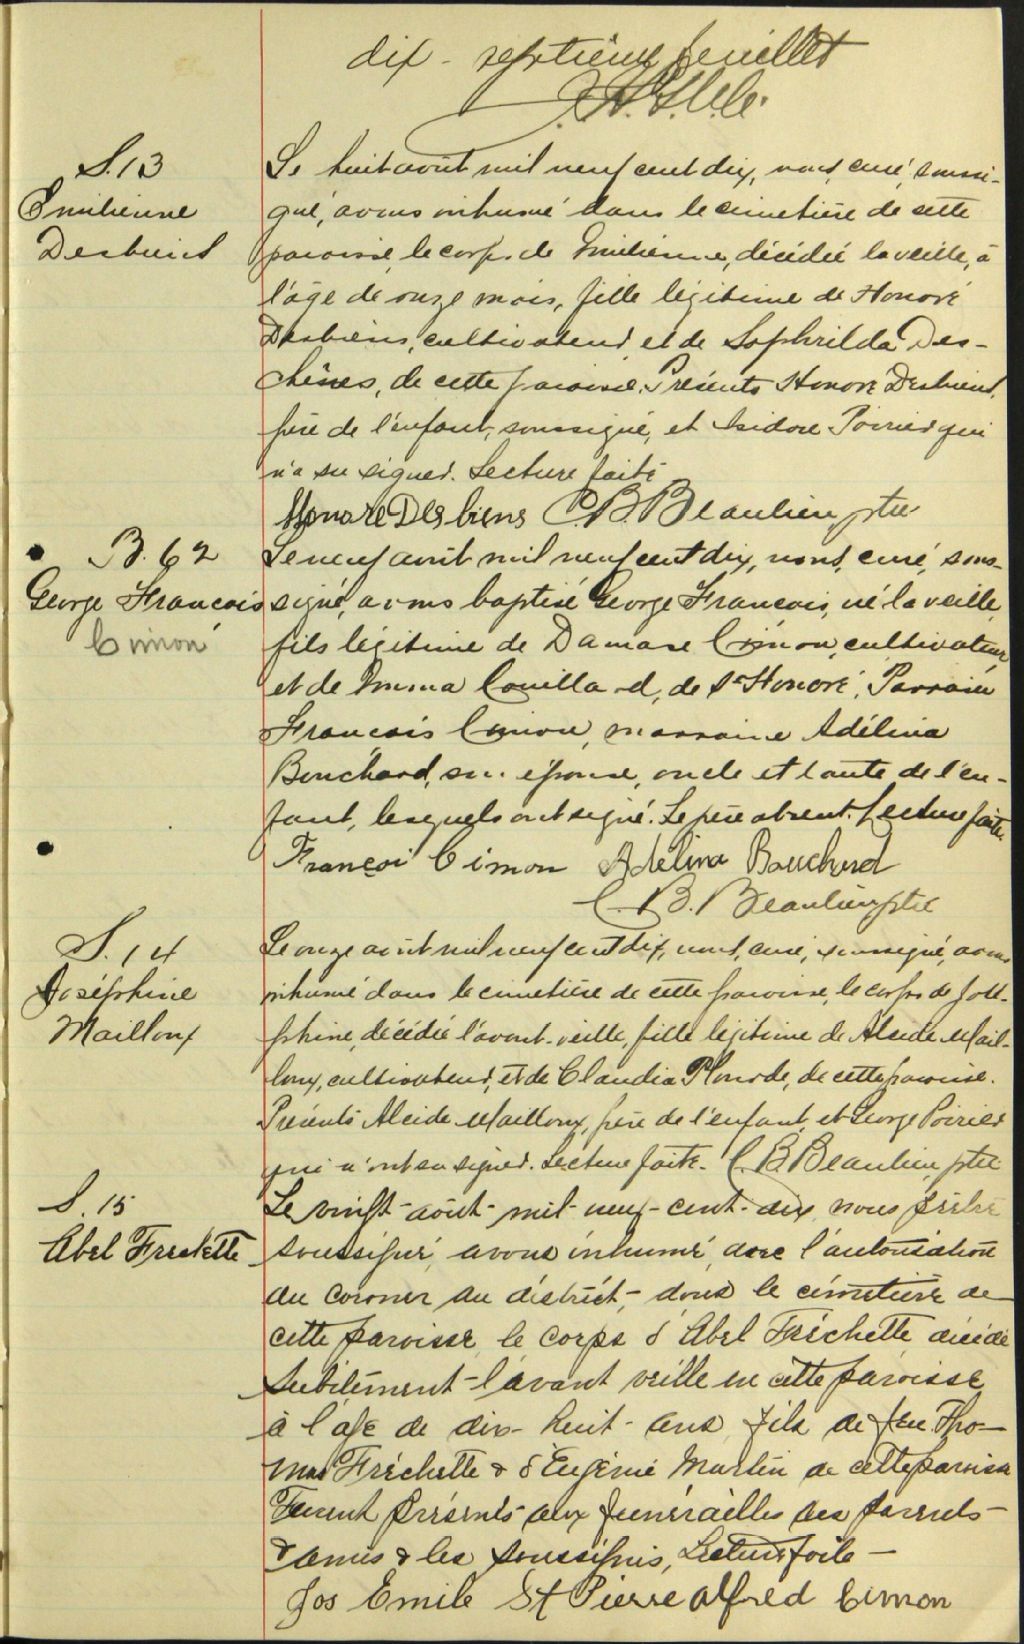 dix-septième feuillet
S. 13
Emilienne
Desbiens
Le huit août mil neuf cent dix, nous, curé, soussi-
gné, avons inhumé dans le cimetière de cette
paroisse, le corps de Emilienne, décédée la veille, à
l'âge de onze mois, fille légitime de Honoré
Desbiens, cultivateur, et de Sophrilda Des-
chênes, de cette paroisse. Présents Honoré Desbiens,
père de l'enfant, soussigné, et Isidore Poirier qui
n'a su signer. Lecture faite
Honoré Desbiens C. B. Beaulieu ptre
B. 62
George François
Cimon
Le neuf août mil neuf cent dix, nous, curé, sous-
signé, avons baptisé George François, né la veille,
fils légitime de Damase Cimon, cultivateur,
et de Emma Couillard, de St Honoré. Parrain
François Cimon, marraine Adélina
Bouchard, son épouse, oncle et tante de l'en-
fant, lesquels ont signé. Le père absent. Lecture faite.
Françoi Cimon Adélina Bouchard
C. B. Beaulieu ptre
S. 14
Joséphine
Mailloux
Le onze août mil neuf cent dix, nous, curé, soussigné, avons
inhumé dans le cimetière de cette paroisse, le corps de José-
phine, décédée l'avant-veille, fille légitime de Alcide Mail-
loux, cultivateur, et de Claudia Plourde, de cette paroisse.
Présents Alcide Mailloux, père de l'enfant, et George Poirier
qui n'ont su signer. Lecture faite. C. B. Beaulieu ptre
S. 15
Abel Frechette
Le vingt-août-mil-neuf-cent-dix nous prêtre
soussigné, avons inhumé, avec l'autorisation
du coroner du district, dans le cimetière de
cette paroisse le corps d'Abel Fréchette décédé
subitement l'avant veille en cette paroisse
à l'age de dix-huit-ans fils de feu Tho-
mas Fréchette & d'Eugénie Martin de cette paroisse
Furent présents aux funérailles des parents
& amis & les soussignés, Lecture faite
Jos Emile St Pierre Alfred Cimon